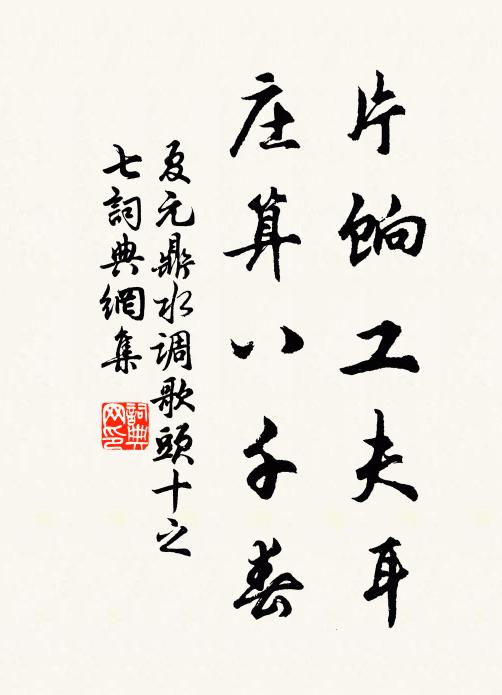 片饷工夫耳
庄算八千春
夏元鼎水调歌頭十之
七詞典網集
詞典网印